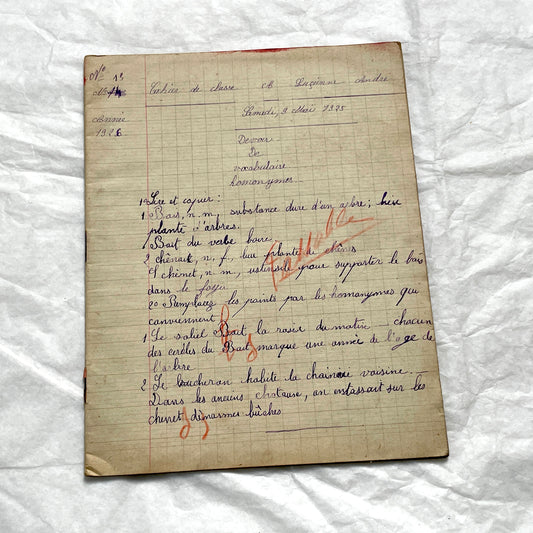 N° 13
Cahier de classe Lucienne André
Année
1926
Samedi, 9 Mai 1925
Devoir
De
vocabulaire
homonymes
1° Lire et copier:
1 Bois, n. m, substance dure d'un arbre; lieu
planté d'arbres.
1 Boit du verbe boire
2 chênait, n, f, lieu planté de chênes
et chênet, n m, ustensile pour supporter le bois
dans le foyer
Passable
20 Remplacez les points par les homonymes qui
conviennent
1 Le soleil Boit la rosée du matin chacun
des cercles du Boit marque une année de l'age de
l'arbre
2. Le bucheron habite la chainaie voisine.
Dans les anciens chateaux, on entassait sur les
bûches